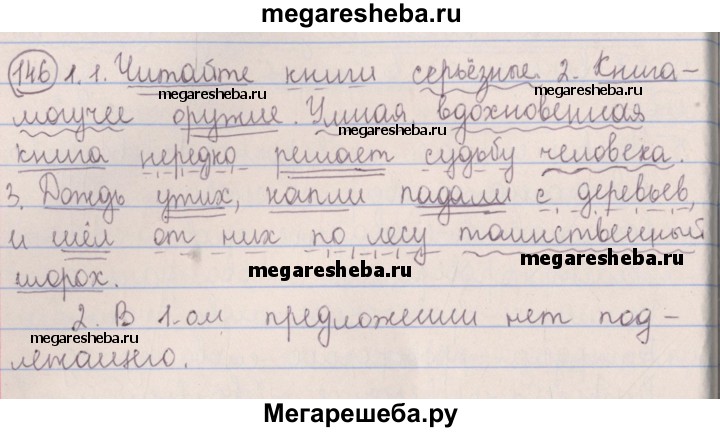 megaresheba.ru
146 1. 1. Читайте книги серьёзные. 2. Книга-
megaresheba.ru
megaresheba.ru
могучее оружие. Умная, вдохновенная
megaresheba.ru
книга нередко решает судьбу человека.
3. Дождь утих, капли падали с деревьев,
и шёл от них по лесу таинственный
megaresheba.ru
megaresheba.ru
шорох.
2. В 1-ом предложении нет под-
megaresheba.ru
megaresheba.ru
лежащего.
Мегарешеба.ру